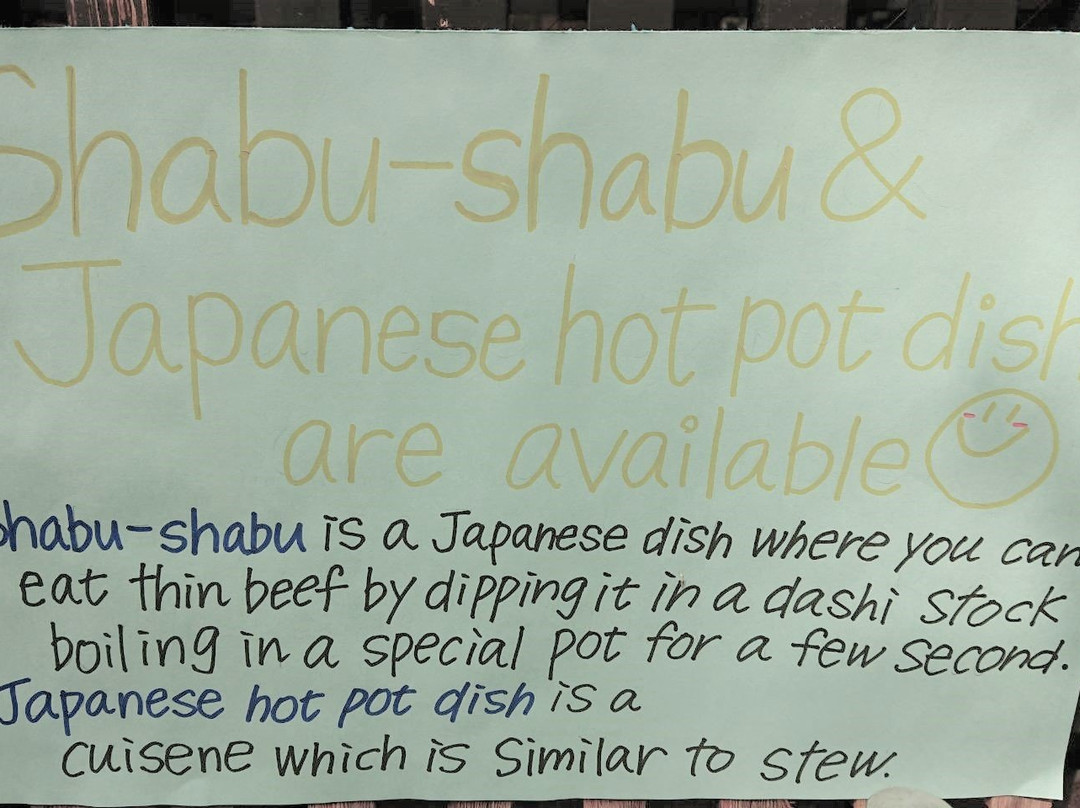 Shabu-shabu &
Japanese hot pot dish
are available
Shabu-shabu is a Japanese dish where you can
eat thin beef by dipping it in a dashi stock
boiling in a special pot for a few second.
Japanese hot pot dish is a
cuisene which is similar to stew.